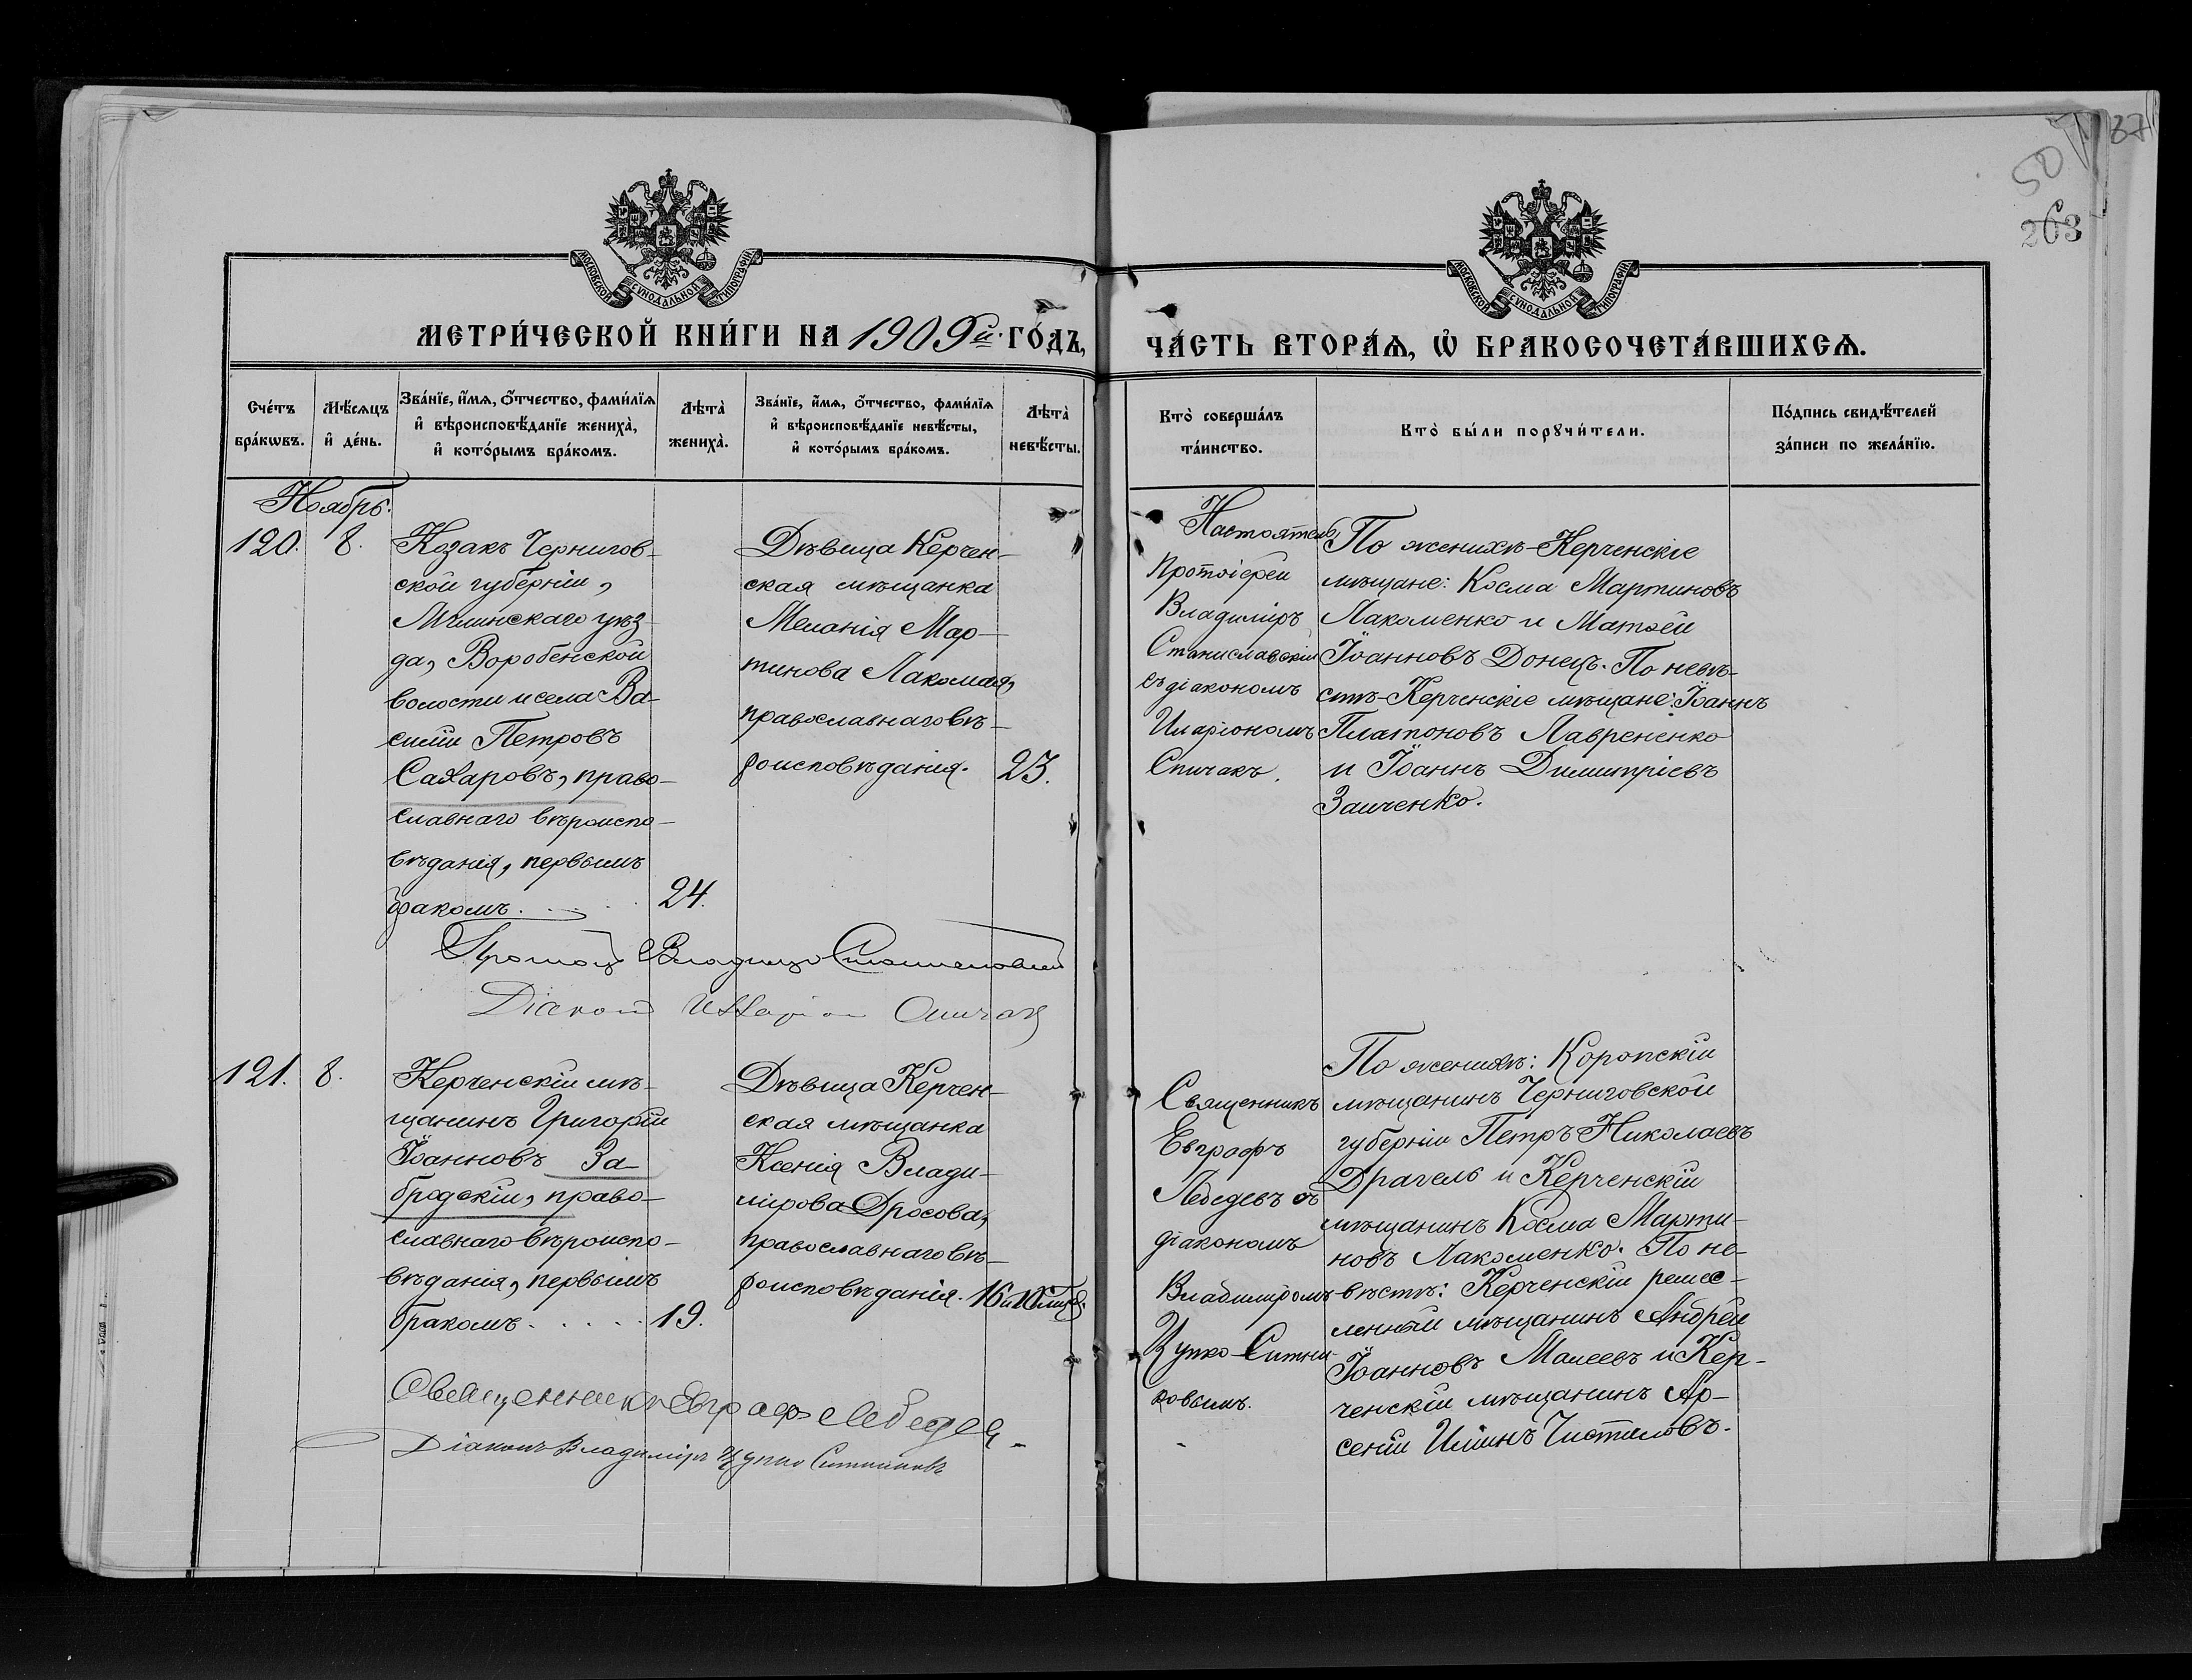 50
37
263
МОСКОВСКОЙ СѴНОДАЛЬНОЙ ТИПОГРАФІИ
МОСКОВСКОЙ СѴНОДАЛЬНОЙ ТИПОГРАФІИ
МЕТРИ́ЧЕСКОЙ КНИ́ГИ НА 1909й ГО́ДЪ,
ЧА́СТЬ ВТОРА́Ѧ, Ѡ҆ БРАКОСОЧЕТА́ВШИХСѦ.
Сче́тъ
бра́кѡвъ.
Мѣ́сѧцъ
и҆ де́нь.
Зва́нїе, и҆́мѧ, ѻ҆́тчество, фами́лїѧ
и҆ вѣроисповѣ́данїе жениха̀,
и҆ кото́рымъ бра́комъ.
Лѣта̀
жениха̀.
Зва́нїе, и҆́мѧ, ѻ҆́тчество, фами́лїѧ
и҆ вѣроисповѣ́данїе невѣ́сты,
и҆ кото́рымъ бра́комъ.
Лѣта̀
невѣ́сты.
Кто̀ соверша́лъ
та́инство.
Кто̀ бы́ли порꙋчи́тели.
По́дпись свидѣ́телей
за́писи по жела́нїю.
Ноябрь.
120.
8.
Козакъ Чернигов-
ской губерніи,
Мглинскаго уѣз-
да, Воробенской
волости и села Ва-
силій Петровъ
Сахаровъ, право-
славнаго вѣроиспо-
вѣданія, первымъ
бракомъ.
24.
Дѣвица Керчен-
ская мѣщанка
Меланія Мар-
тинова Лакомая,
православнаго вѣ-
роисповѣданія.
23.
Настоятель
Протоіерей
Владиміръ
Станиславскій
съ діакономъ
Иларіономъ
Спичакъ.
По женихѣ-Керченскіе
мѣщане: Косма Мартиновъ
Лакоменко и Матѳей
Іоанновъ Донецъ. По невѣ-
стѣ-Керченскіе мѣщане: Іоаннъ
Платоновъ Лаврененко
и Іоаннъ Димитріевъ
Заиченко.
Владиміръ Станиславскій
Діаконъ Иларіон Спичак
121.
8.
Керченскій мѣ-
щанинъ Григорій
Іоанновъ За-
бродскій, право-
славнаго вѣроиспо-
вѣданія, первымъ
бракомъ.....
19.
Дѣвица Керчен-
ская мѣщанка
Ксенія Влади-
мірова Дросова,
православнаго вѣ-
роисповѣданія.
16
Священникъ
Евграфъ
Лебедевъ съ
діакономъ
Владиміромъ
Цупко-Ситни-
ковымъ.
По женихѣ: Коропскій
мѣщанинъ Черниговской
губерніи Петръ Николаевъ
Драгель и Керченскій
мѣщанинъ Косма Марти-
новъ Лакоменко. По не-
вѣстѣ: Керченскій ремес-
ленный мѣщанинъ Андрей
Іоанновъ Малеевъ и Кер-
ченскій мѣщанинъ Ар-
сеній Ильинъ Чистиловъ.
Священникъ Евграфъ Лебедевъ
Діаконъ Владиміръ Цупко Ситниковъ